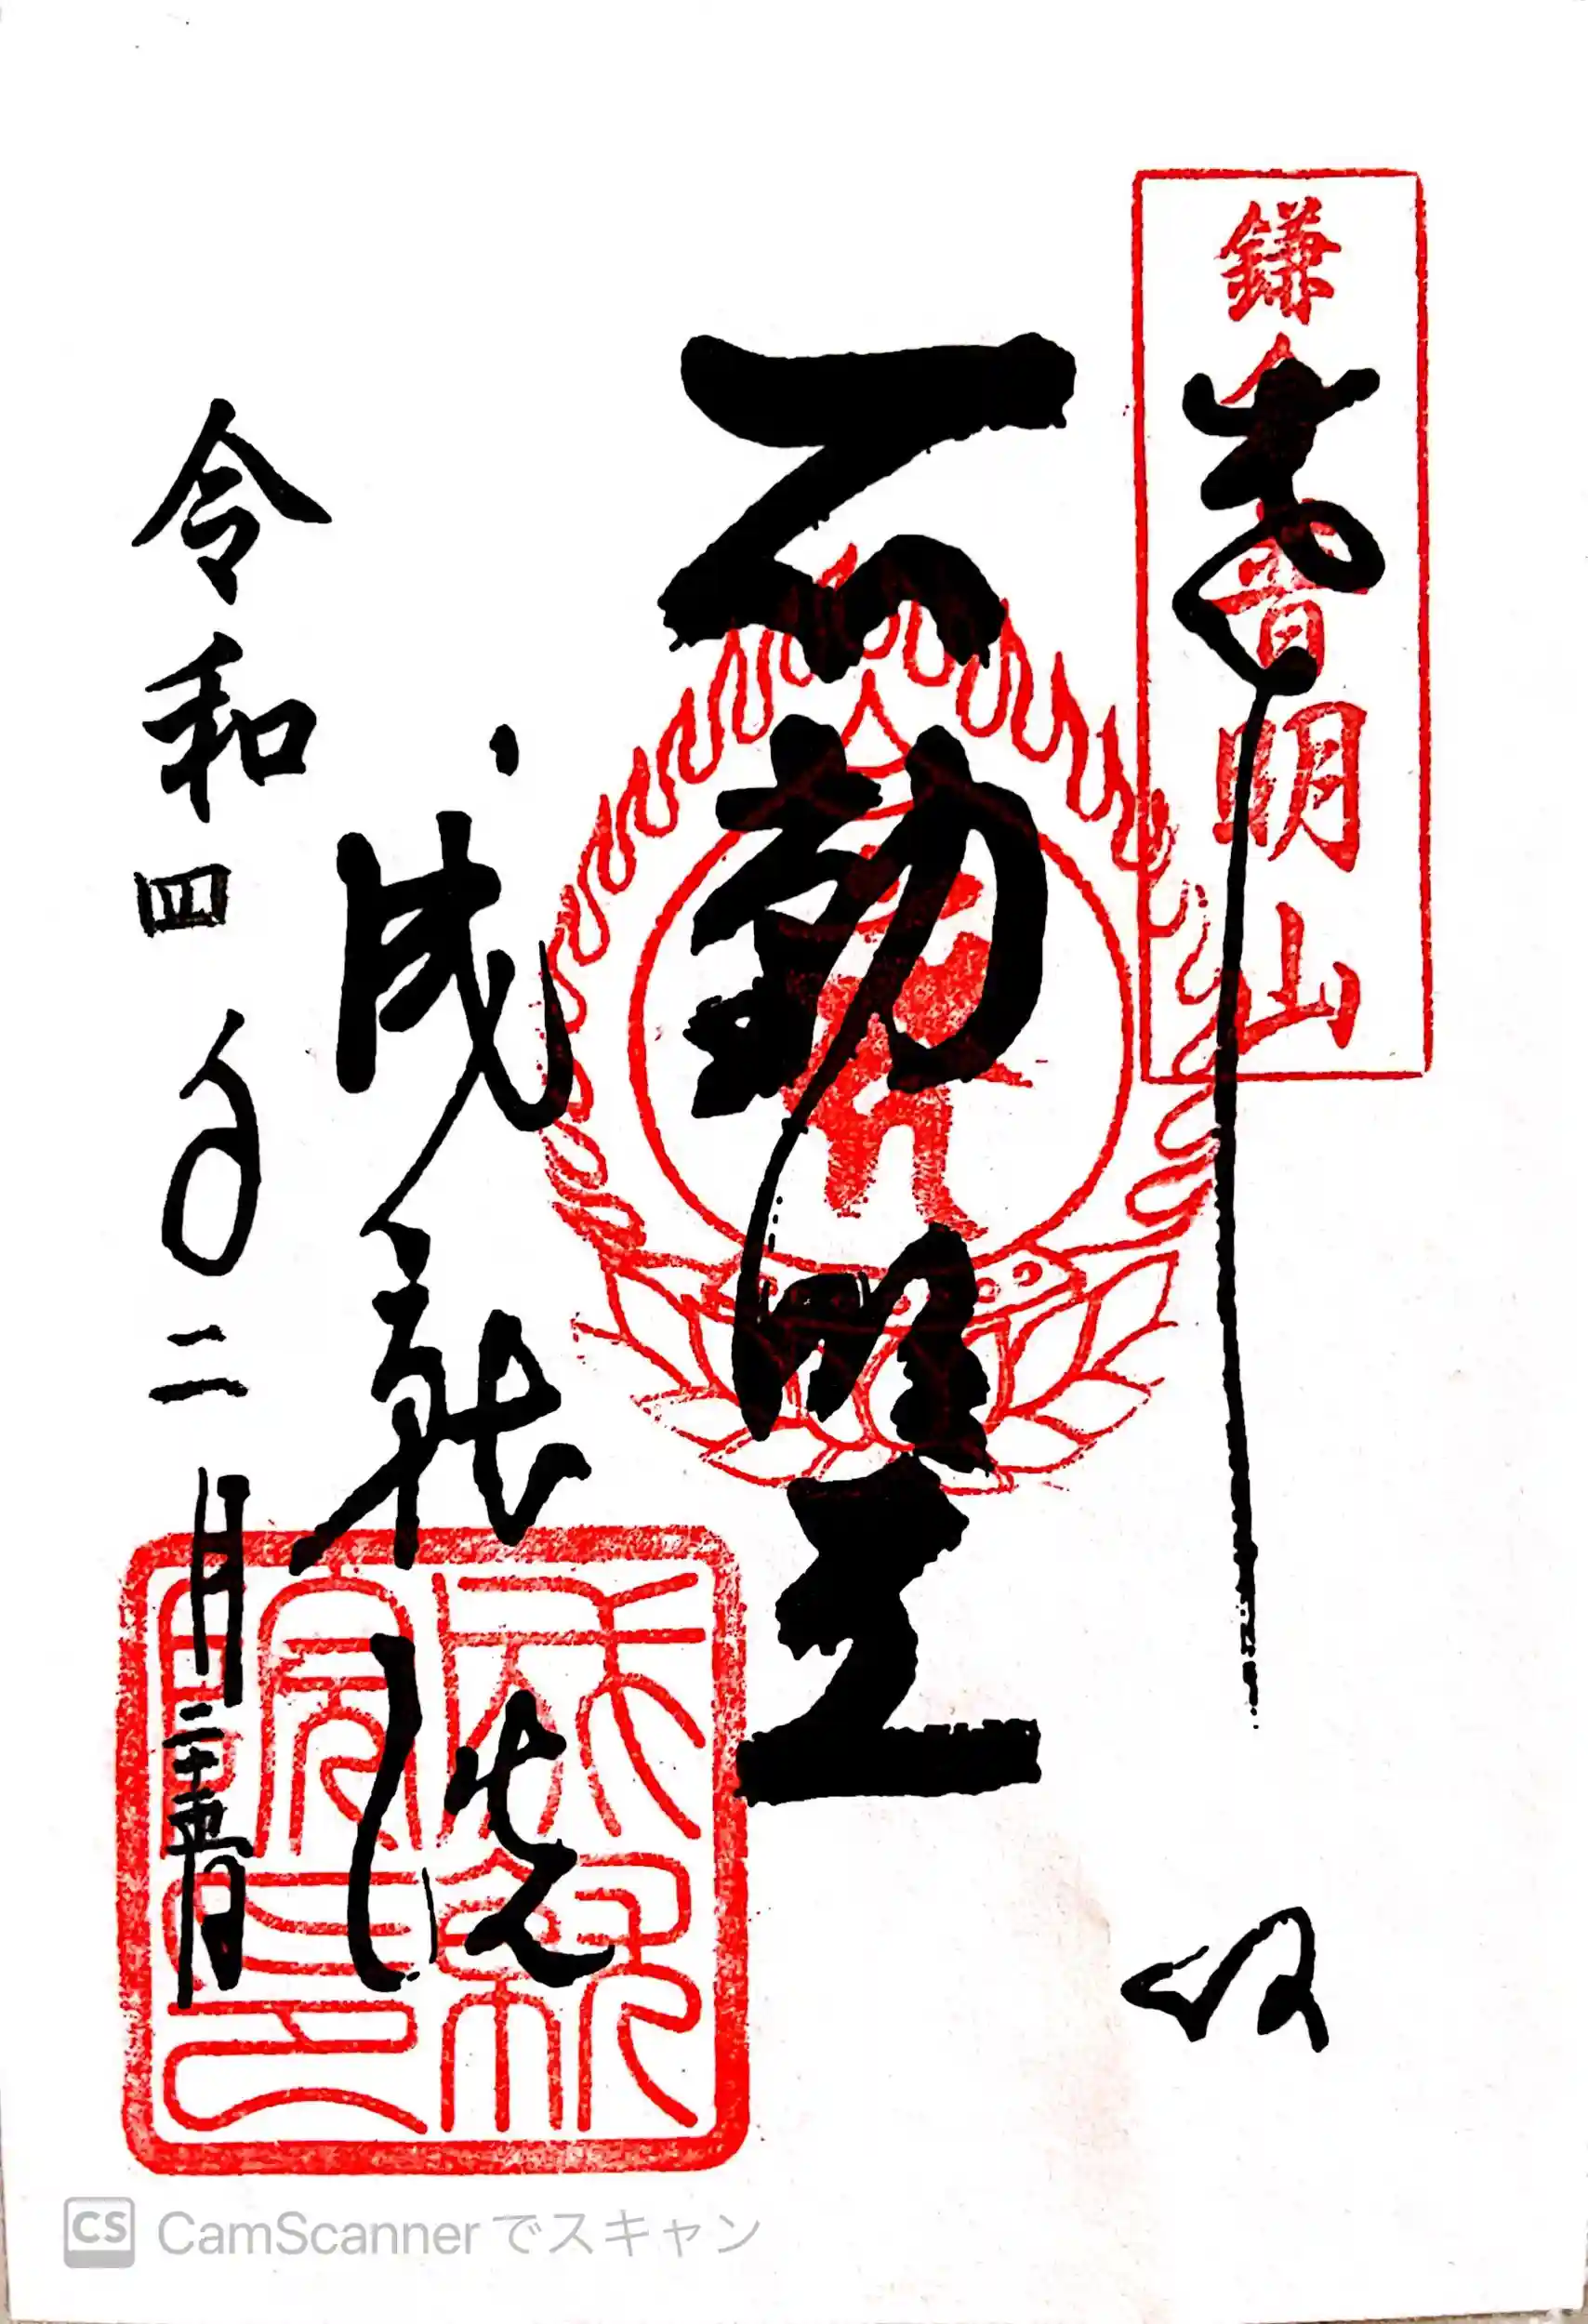 鎌倉普明山
奉拝
不動明王
成就院
令和四年二月二十
CS CamScannerでスキャン